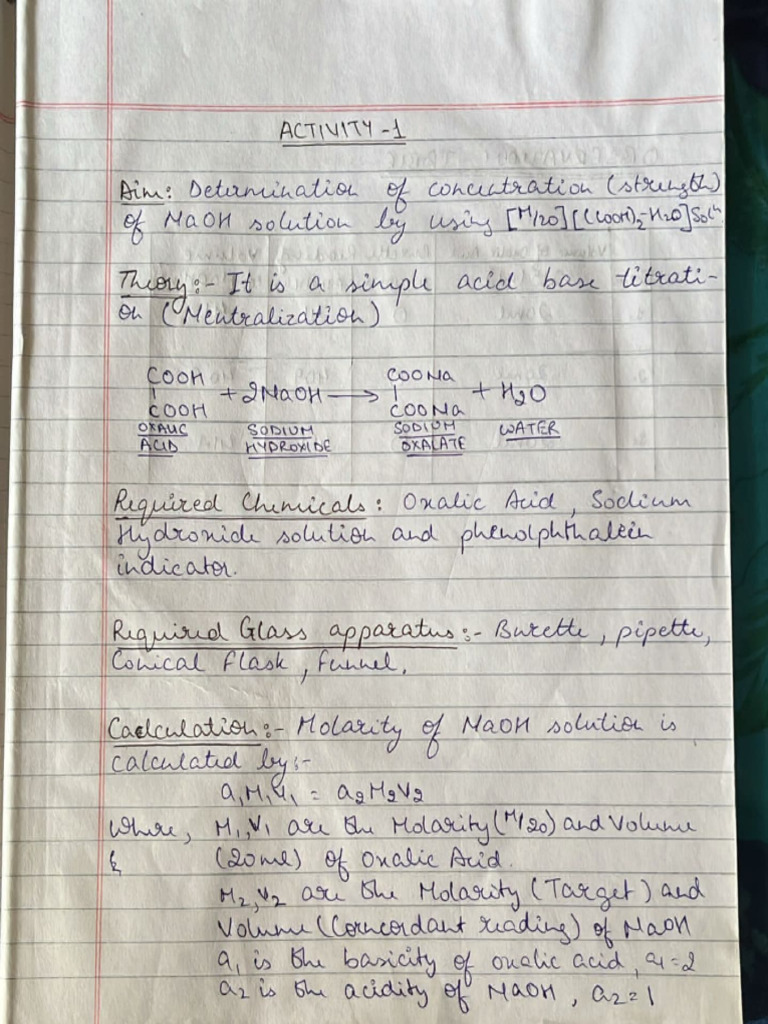 ACTIVITY-1
Aim: Determination of concentration (strength)
of NaOH solution by using [M/20][(COOH)2-H2O]Solⁿ
Theory:- It is a simple acid base titrati-
on (Neutralization)
COOH COONa
| + 2NaOH → | + H2O
COOH COONa
OXALIC SODIUM SODIUM WATER
ACID HYDROXIDE OXALATE
Required Chemicals: Oxalic Acid, Sodium
Hydroxide solution and phenolphthalein
indicator.
Required Glass apparatus:- Burette, pipette,
Conical Flask, funnel.
Caclculation:- Molarity of NaOH solution is
calculated by:-
a1M1V1 = a2M2V2
where, M1,V1 are the Molarity (M/20) and Volume
& (20ml) of Oxalic Acid.
M2,V2 are the Molarity (Target) and
Volume (Corncordant reading) of NaOH
a1 is the basicity of oxalic acid, a1=2
a2 is the acidity of NaOH, a2=1